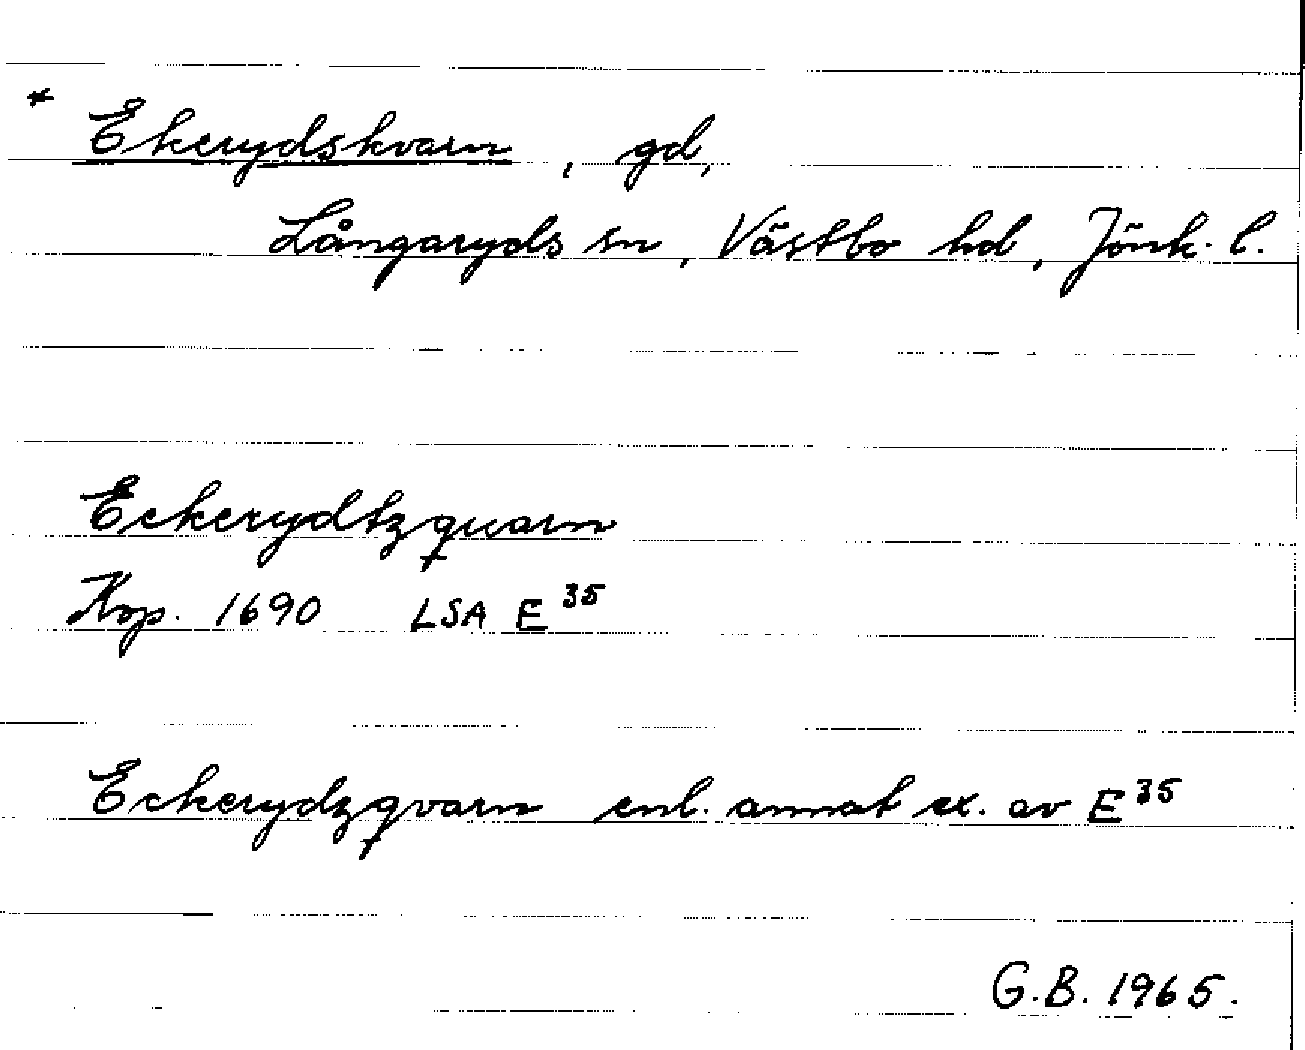 * Ekerydskvarn, gd,
Långaryds sn, Västbo hd, Jönk. l.
Eckerydtzquarn
Kop. 1690 LSA E 35
Eckerydzqvarn enl. annat ex. av E 35
G.B. 1965.